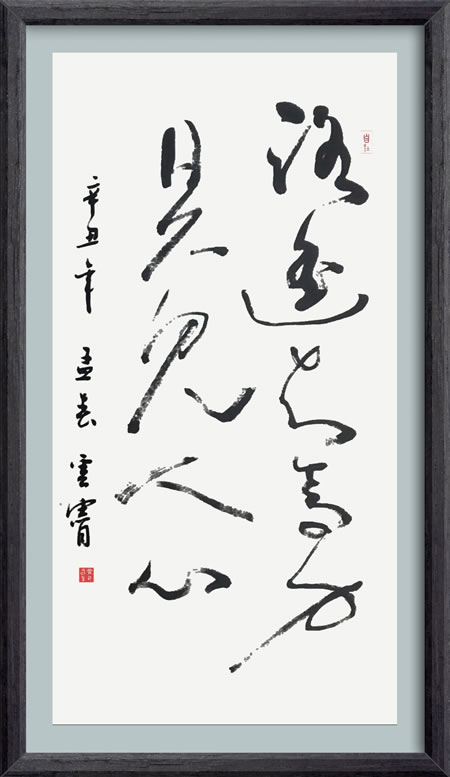 路遥知马力
日久见人心
辛丑年 孟春 云霄